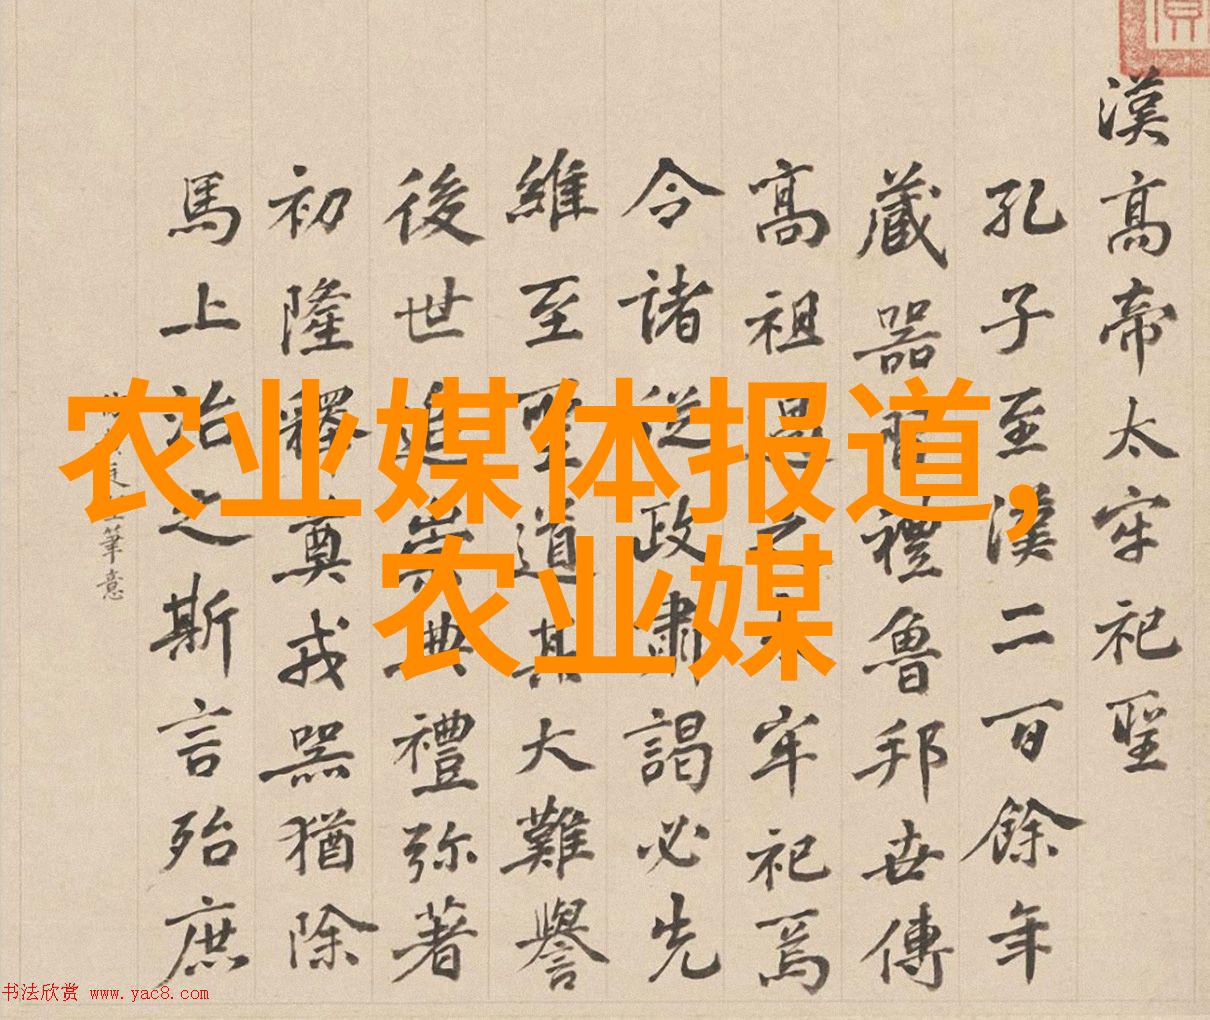 漢高帝太牢祀聖
孔子至漢二百餘年
藏器習禮魯邦世傳
高祖過之太牢祀焉
令諸從政肅謁必先
維至聖道其大難譽
後世追崇典禮彌著
初隆釋奠戎器猶除
馬上治之斯言殆庶
筆意
农业媒体报道,
农业媒
书法欣赏 www.yac8.com